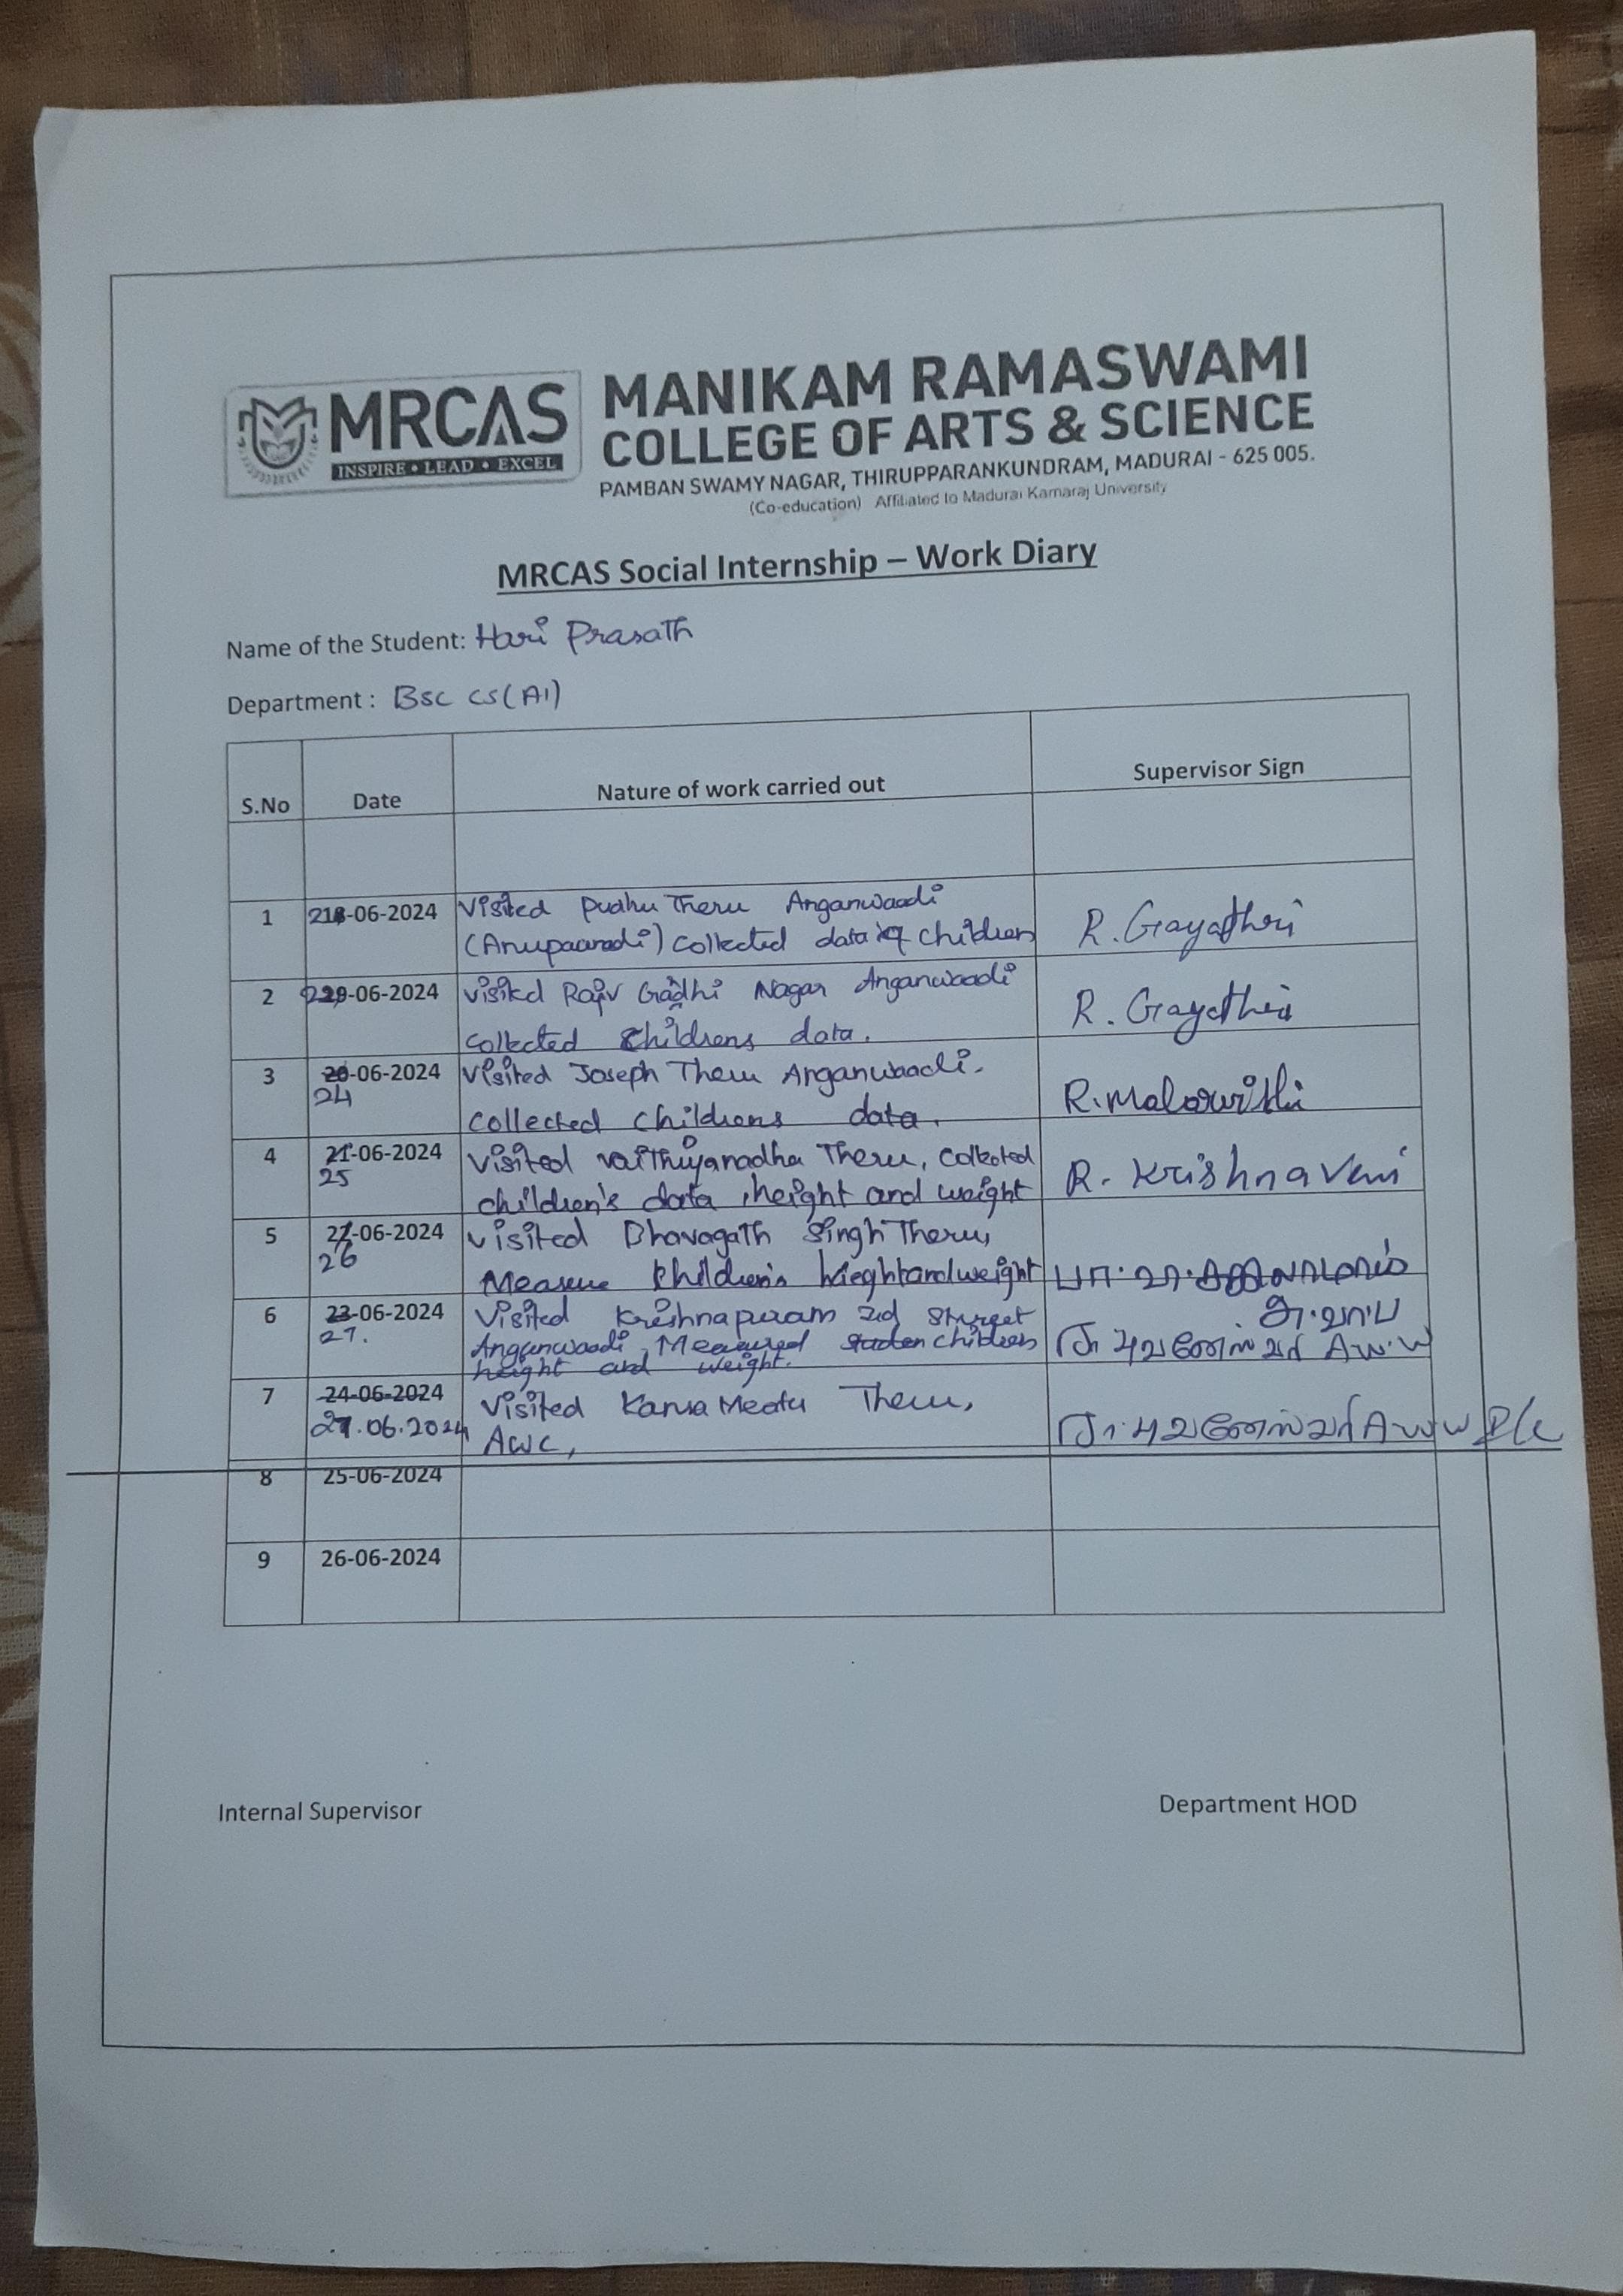 MRCAS
INSPIRE • LEAD • EXCEL
MANIKAM RAMASWAMI
COLLEGE OF ARTS & SCIENCE
PAMBAN SWAMY NAGAR, THIRUPPARANKUNDRAM, MADURAI - 625 005.
(Co-education) Affiliated to Madurai Kamaraj University
MRCAS Social Internship – Work Diary
Name of the Student: Hari Prasath
Department : BSC CS(AI)
S.No Date Nature of work carried out Supervisor Sign
1 21-06-2024 Visited Pudhu Theru Anganwaadi
(Anupaanadi) collected data of children R. Gayathri
2 22-06-2024 Visited Rajiv Gadhi Nagar Anganwaadi
collected childrens data. R. Gayathri
3 20-06-2024 Visited Joseph Theru Anganwaadi.
24 collected childrens data.
4 21-06-2024 Visited Vaithiyanadha Theru, collected
25 children's data, height and weight R. Krishnaveni
5 22-06-2024 Visited Bhavagath Singh Theru,
26 Measure children's hieght and weight
6 23-06-2024 Visited Krishnapuram 3rd Street
27. Anganwaadi Measured children
height and weight.
7 24-06-2024 Visited Theru,
27.06.2024 AWC,
8 25-06-2024
9 26-06-2024
Internal Supervisor Department HOD